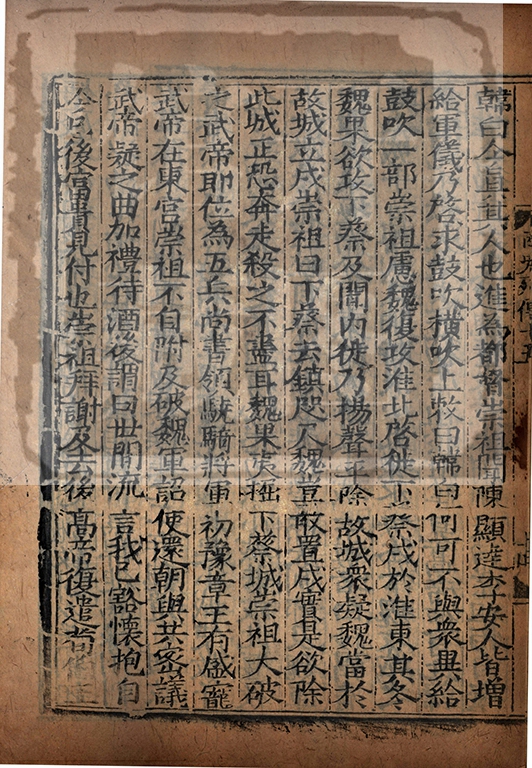 韓白今眞其人也進為都督崇祖聞陳顯達李安人皆增
給軍儀乃啓求鼓吹橫吹上敕曰韓白何可不與衆異給
鼓吹一部崇祖慮魏復攻淮北啓徙下蔡戍於淮東其冬
魏果欲攻下蔡及聞內徙乃揚聲平除故城衆疑魏當於
故城立戍崇祖曰下蔡去鎮咫尺魏豈敢置戍實是欲除
此城正恐奔走殺之不盡耳魏果夷掘下蔡城崇祖大破
之武帝即位為五兵尚書領驍騎將軍初豫章王有盛寵
武帝在東宮崇祖不自附及破魏軍詔使還朝與共密議
武帝疑之曲加禮待酒後謂曰世間流言我已豁懷抱自
今以後富貴見付也崇祖拜謝及去後高帝復遣荀